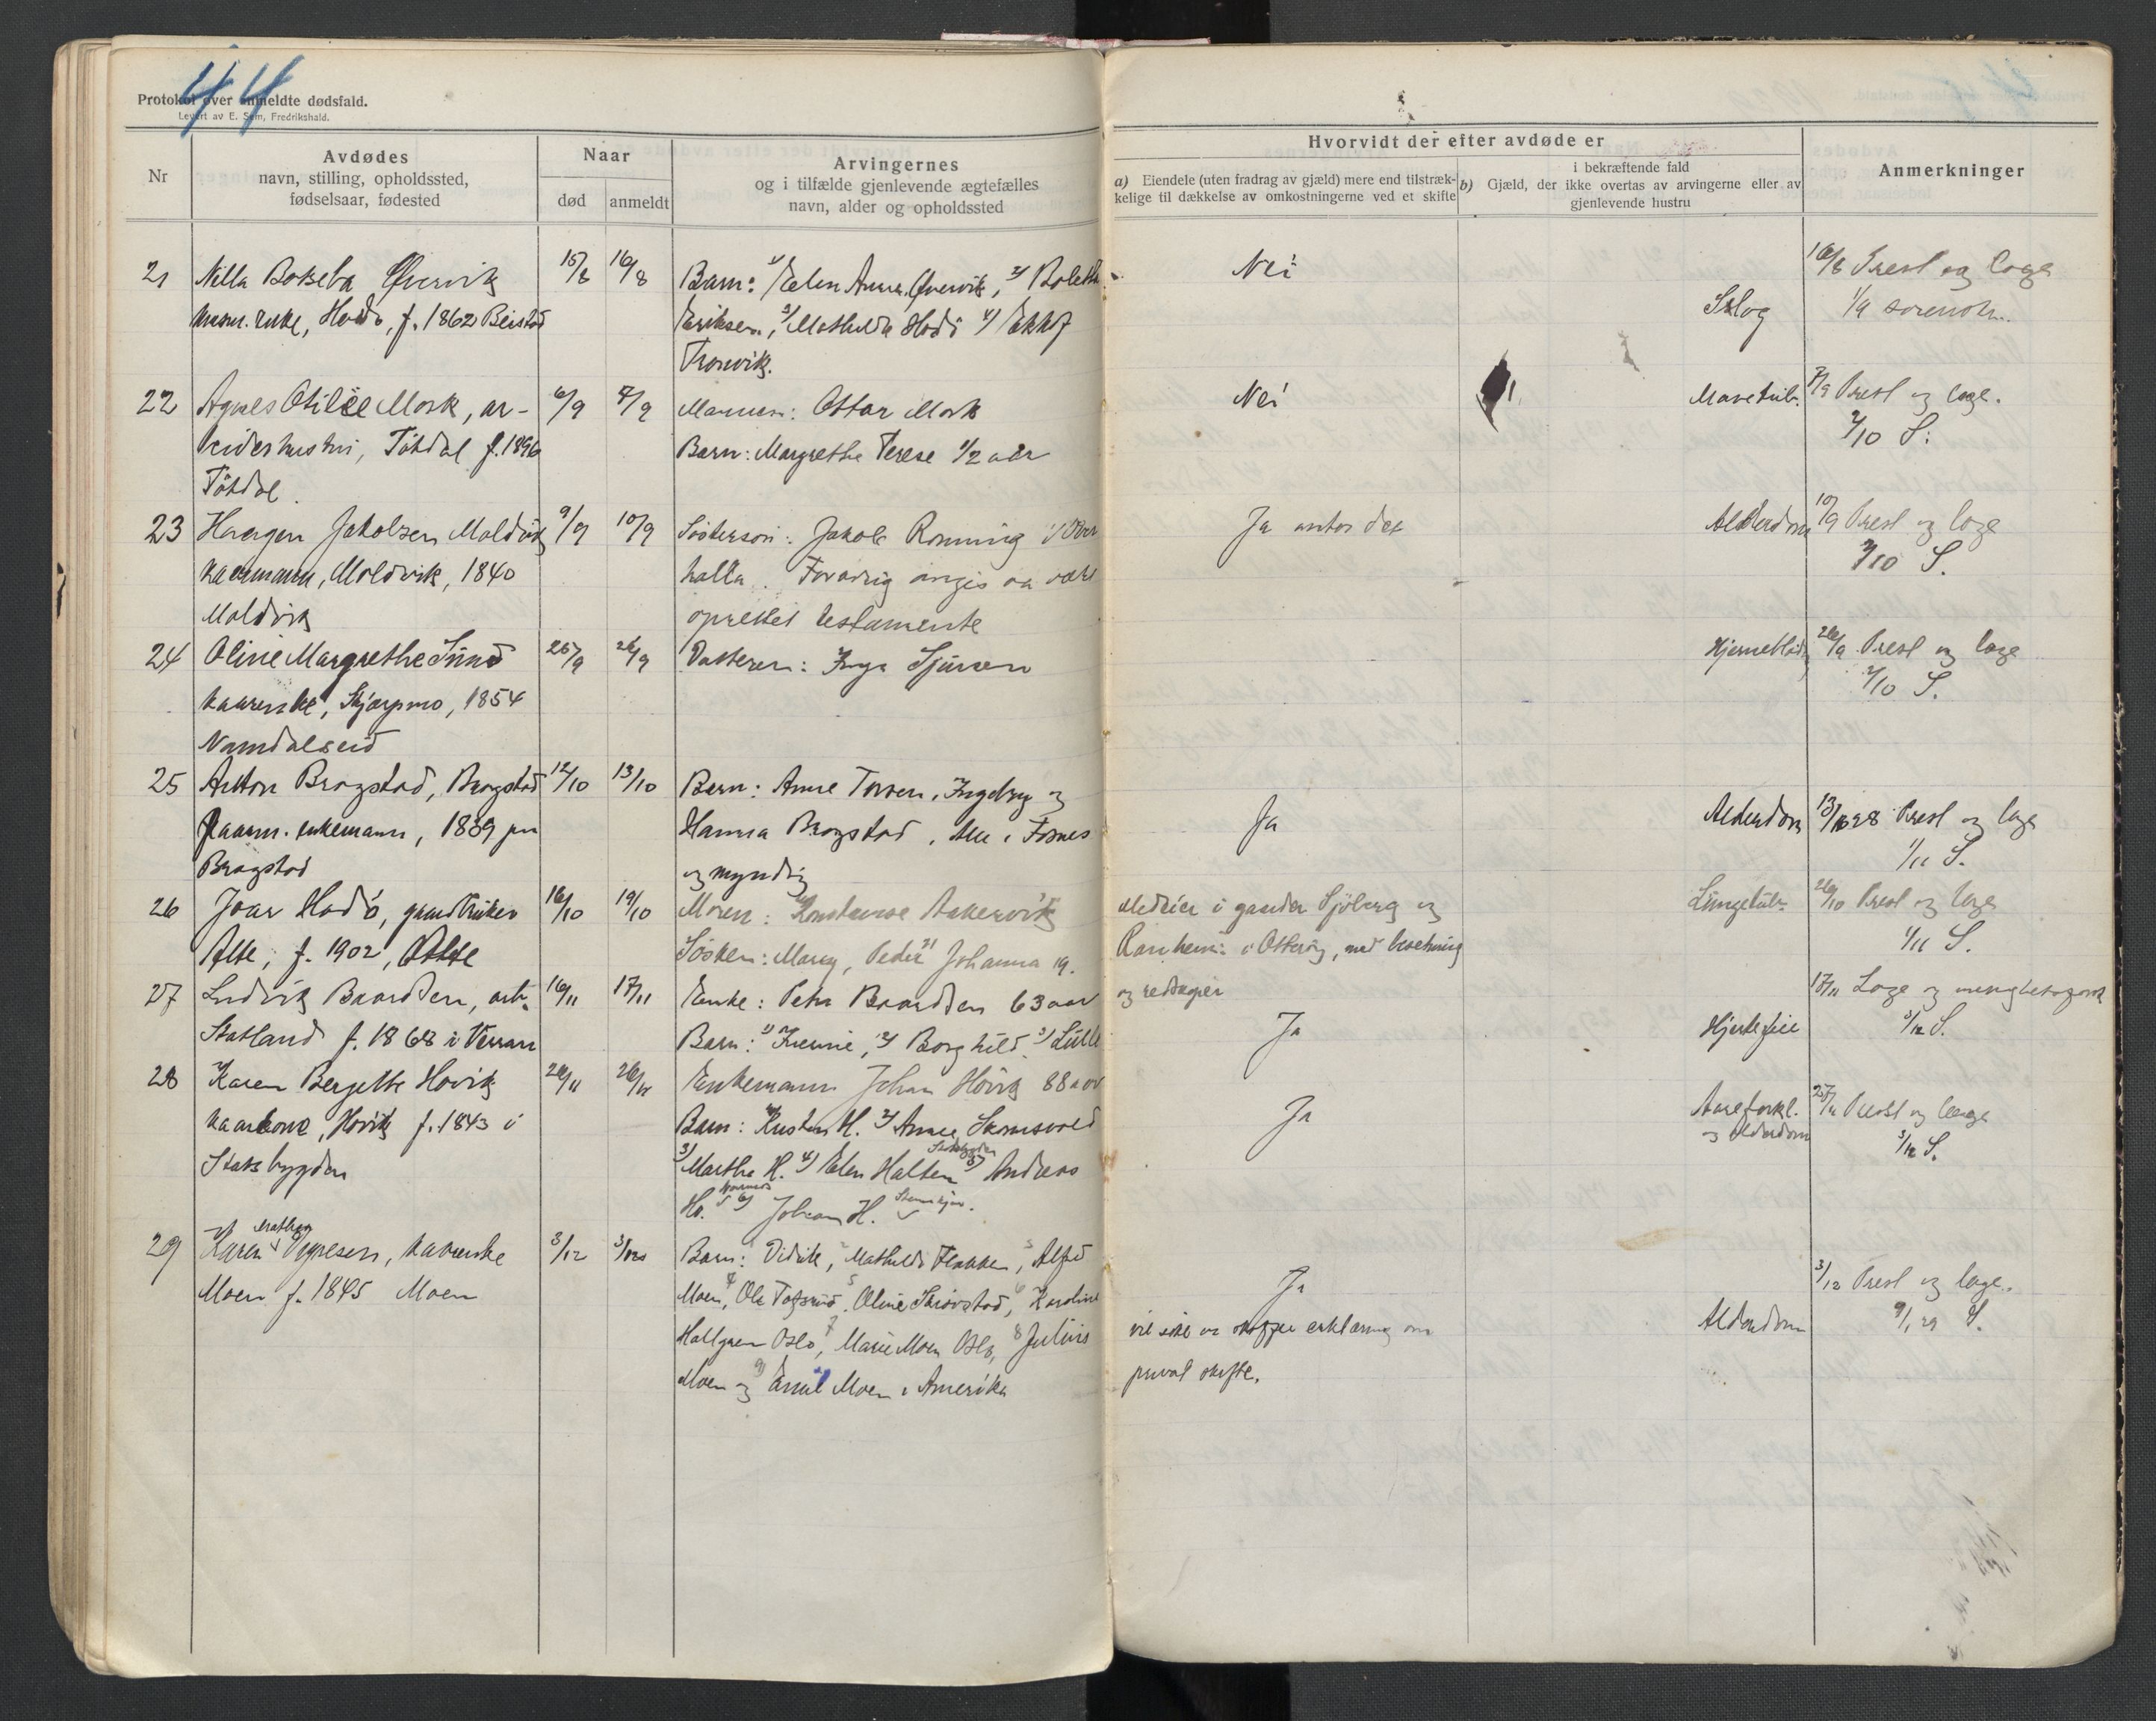 44
Protokol over anmeldte dødsfald.
Levert av E. Sem, Fredrikshald.
Nr
Avdødes
navn, stilling, opholdssted,
fødselsaar, fødested
Naar
død
anmeldt
Arvingernes
og i tilfælde gjenlevende ægtefælles
navn, alder og opholdssted
Hvorvidt der efter avdøde er
a) Eiendele (uten fradrag av gjæld) mere end tilstræk-
kelige til dækkelse av omkostningerne ved et skifte
i bekræftende fald
b) Gjæld, der ikke overtas av arvingerne eller av
gjenlevende hustru
Anmerkninger
21 Nilla Bokseba Øvervik 15/8 16/8 Barn: 1/ Elen Anna Øvervik, 2/ Bolette Nei 16/8 Prest og læge
enke, Hodø, f. 1862 Beistad Eriksen, 3/ Mathilda Hodø 4/ Slag 1/9
Tronvik.
22 Agnes Otilie Mork, ar- 6/9 7/9 Mannen: Ottar Mork Nei Mavetub. 7/9 Prest og læge.
beiderhustru, Tøtdal f. 1896 Barn: Margrethe Terese 1/2 aar 2/10 S.
Tøtdal.
23 Haagen Jakobsen Moldvik 9/9 10/9 Søsterson: Jakob Rønning i Over Ja antas det Alderdom 10/9 Prest og læge
kaarmann, Moldvik, 1840 halla. Forøvrig angis at være 2/10 S.
Moldvik oprettet testamente
24 Oline Margrethe Sund 25/9 26/9 Datteren: Inga Sjursen Hjerneblød. 26/9 Prest og læge
kaarenke, Skjærpmo, 1854 2/10 S.
Namdalseid
25 Anton Bragstad, Bragstad 12/10 13/10 Barn: Anne Torsen, Ingebrg og Ja Alderdom 13/10 28 Prest og læge
kaarm. enkemann, 1839 paa Hanna Bragstad, Alle i Fosnes 1/11 S.
Bragstad og myndig
26 Joar Hodø, gaardbruker 16/10 19/10 Moren: Konstanse Aakervik Medeier i gaarden Sjøberg og Lungetub. 26/10 Prest og læge
Alte, f. 1902, Alte Søsken: Mary, Peder 21 Johanna 19. i Otterøy, med besetning 1/11 S.
27 Ludvik Baardsen, arb. 16/11 17/11 Enke: Petra Baardsen 63 aar og redskaper 17/11 Læge og
Statland f. 1868 i Verran Barn: 1/ 2/ Borghild, 3/ Ja Hjertefeil 3/12 S.
28 Karen Bergette Hovik 26/11 26/11 Enkemann Johan Hovik 88 aar
kaarkone, Hovik f. 1843 i Barn: H. 2/ Anne Skomsvold Ja Aareforkl. Prest og læge
og alderdom 3/12 S.
Stadsbygden 3/ Martha H. 4/ Elen Halten 5/ Andreas
Ho. 6/ Johan H.
29 Karen Vagnesen, kaarenke 3/12 3/12 Barn: Vidrik, Mathilde Flakken, Alfred
Moen f. 1845 Moen Moen, Ole 5 Oline 6 Karoline Ja 3/12 Prest og læge.
Hallgren Oslo, 7 Marie Moen Oslo, 8 Julius vil søke at skaffe erklæring om Alderdom 9/1 29 S.
Moen og 9/ Emil Moen i Amerika privat skifte.